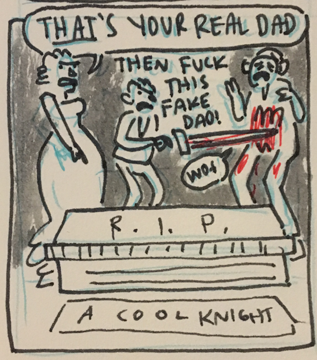 THAT'S YOUR REAL DAD
THEN FUCK
THIS
FAKE
DAD!
WOT
R. I. P.
A COOL KNIGHT